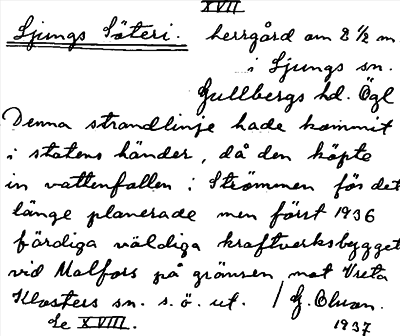 XVII
Ljungs Säteri. herrgård om 2 1/2 m
i Ljungs sn.
Gullbergs hd. Ögl
Denna strandlinje hade kommit
i statens händer, då den köpte
in vattenfallen i Strömmen för det
länge planerade men först 1936
färdiga väldiga kraftverksbygget
vid Malfors på gränsen mot Vreta
Klosters sn. s.ö. ut. / G.
Se XVIII. 1937